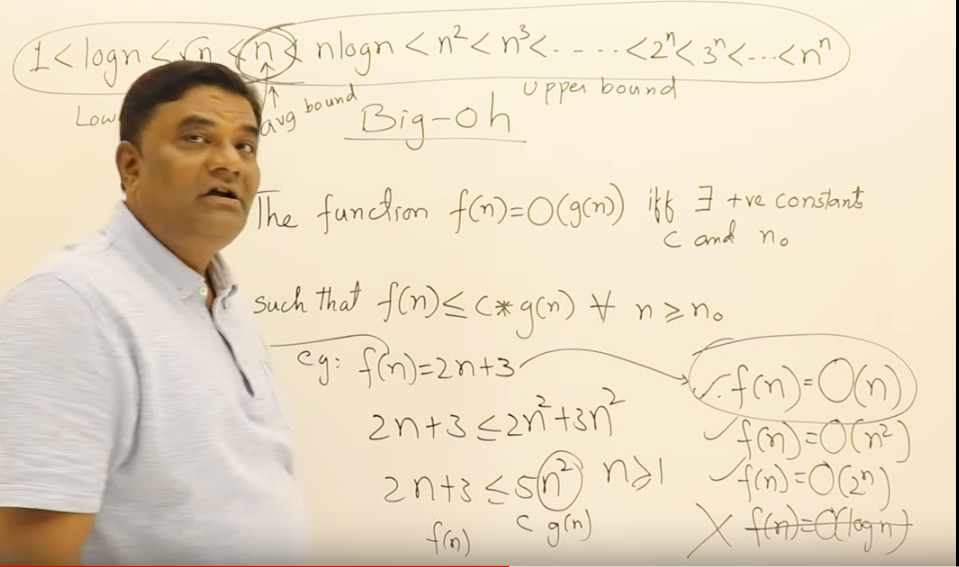 1 < logn < √n < n < nlogn < n² < n³ < ..... < 2ⁿ < 3ⁿ < ... < nⁿ
avg bound
upper bound
Big-oh
The function f(n)=O(g(n)) iff ∃ +ve constants
c and n₀
such that f(n) ≤ c*g(n) ∀ n ≥ n₀
eg: f(n)=2n+3
✓ f(n)=O(n)
2n+3 ≤ 2n²+3n²
✓ f(n)=O(n²)
2n+3 ≤ 5n² n≥1
✓ f(n)=O(2ⁿ)
f(n) c g(n)
X f(n)=O(logn)